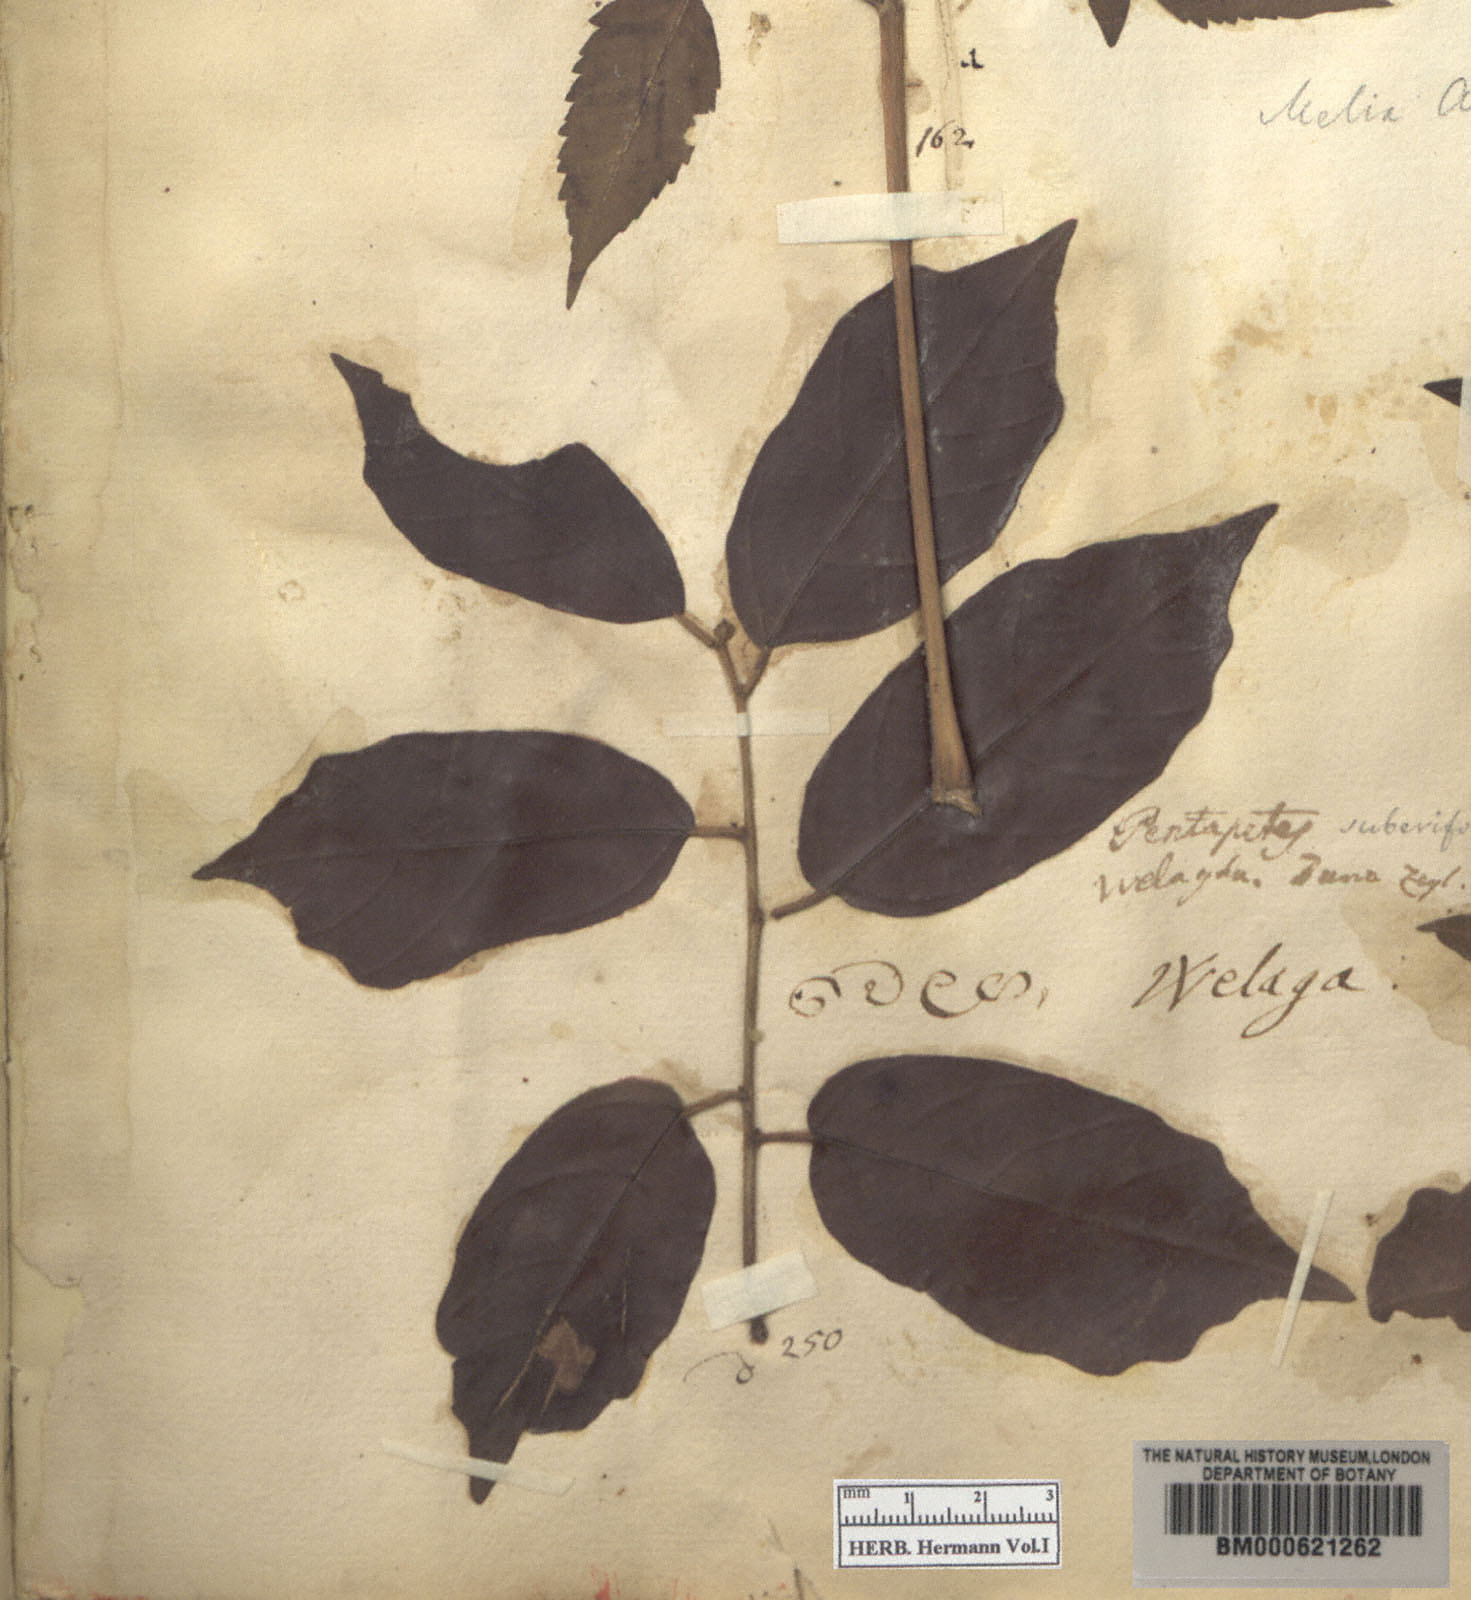 Melia
162
Pentapetes suberifo
Welagdu. Buna Zeyl.
Welaga
250
mm 1 2 3
HERB. Hermann Vol.I
THE NATURAL HISTORY MUSEUM,LONDON
DEPARTMENT OF BOTANY
BM000621262